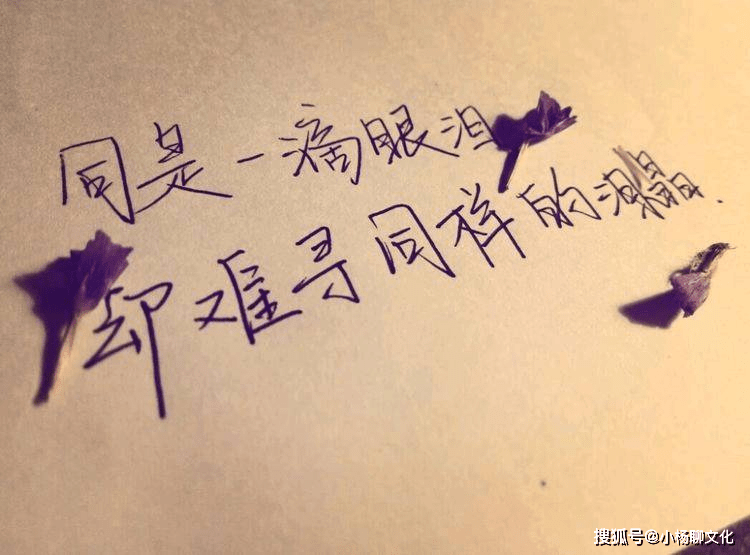 同是一滴眼泪
却难寻同样的晶.
搜狐号@小杨聊文化